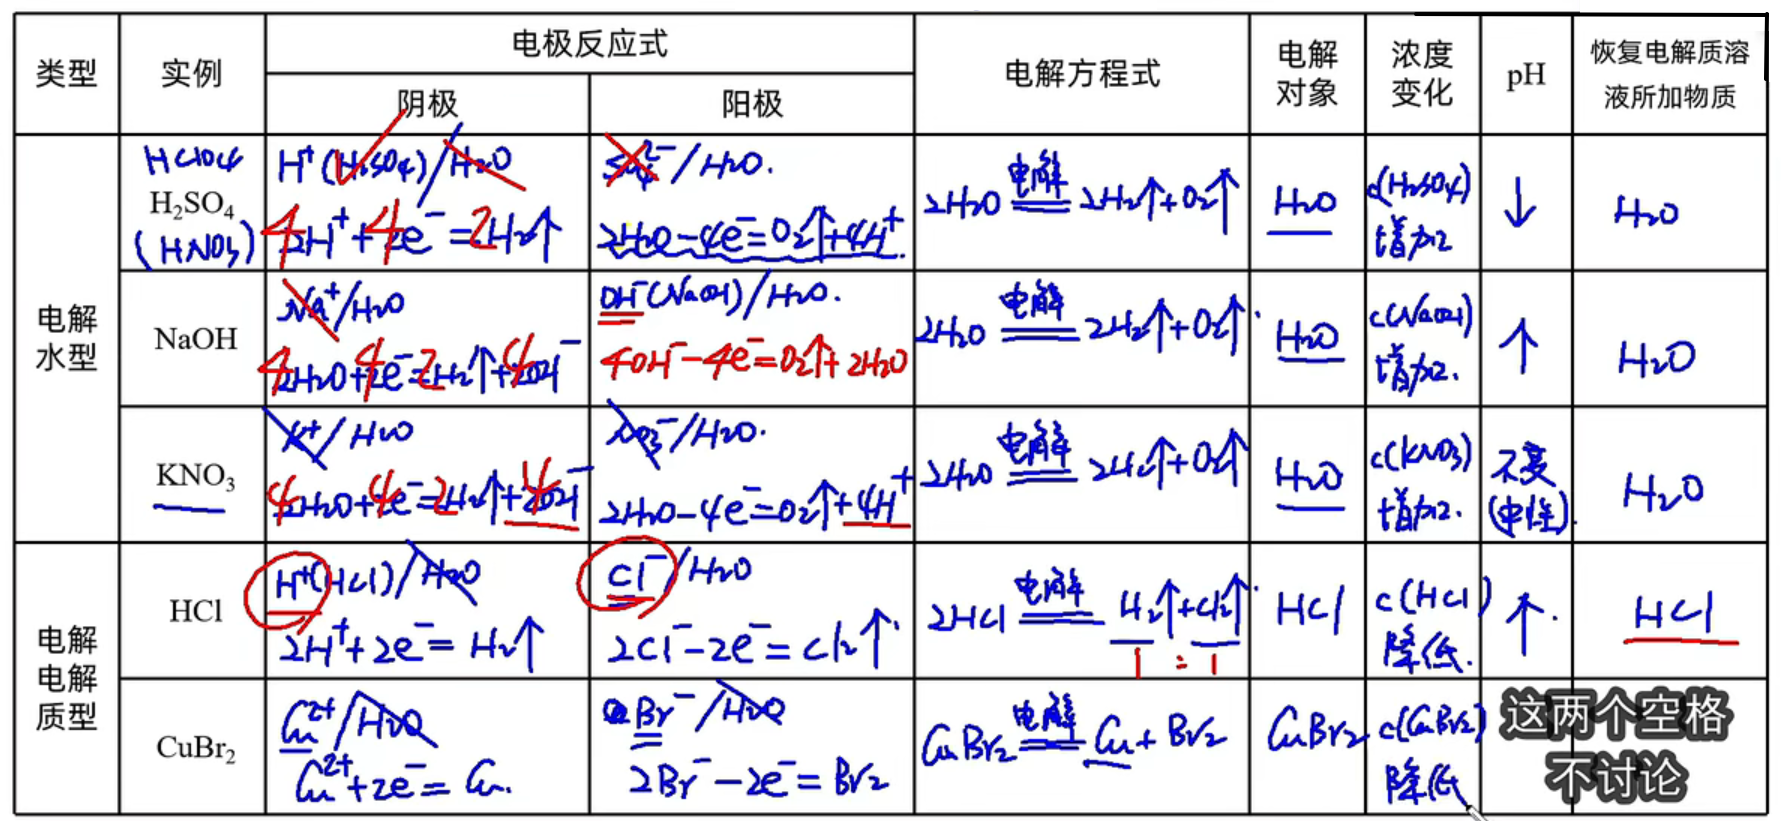 类型
实例
电极反应式
阴极
阳极
电解方程式
电解
对象
浓度
变化
pH
恢复电解质溶
液所加物质
电解
水型
HClO4
H₂SO₄
(HNO3)
H⁺(H₂SO₄)/H₂O
4H⁺+4e⁻=2H₂↑
SO₄²⁻/H₂O.
2H₂O-4e⁻=O₂↑+4H⁺
2H₂O 电解 2H₂↑+O₂↑
H₂O
c(H₂SO₄)
增加
↓
H₂O
NaOH
Na⁺/H₂O
4H₂O+4e⁻=2H₂↑+4OH⁻
OH⁻(NaOH)/H₂O.
4OH⁻-4e⁻=O₂↑+2H₂O
2H₂O 电解 2H₂↑+O₂↑
H₂O
c(NaOH)
增加.
↑
H₂O
KNO₃
K⁺/H₂O
4H₂O+4e⁻=2H₂↑+4OH⁻
NO₃⁻/H₂O.
2H₂O-4e⁻=O₂↑+4H⁺
2H₂O 电解 2H₂↑+O₂↑
H₂O
c(KNO₃)
增加.
不变
(中性).
H₂O
电解
电解
质型
HCl
H⁺(HCl)/H₂O
2H⁺+2e⁻=H₂↑
Cl⁻/H₂O
2Cl⁻-2e⁻=Cl₂↑
2HCl 电解 H₂↑+Cl₂↑
1:1
HCl
c(HCl)
降低.
↑.
HCl
CuBr₂
Cu²⁺/H₂O
Cu²⁺+2e⁻=Cu.
Br⁻/H₂O
2Br⁻-2e⁻=Br₂
CuBr₂ 电解 Cu+Br₂
CuBr₂
c(CuBr₂)
降低
这两个空格
不讨论